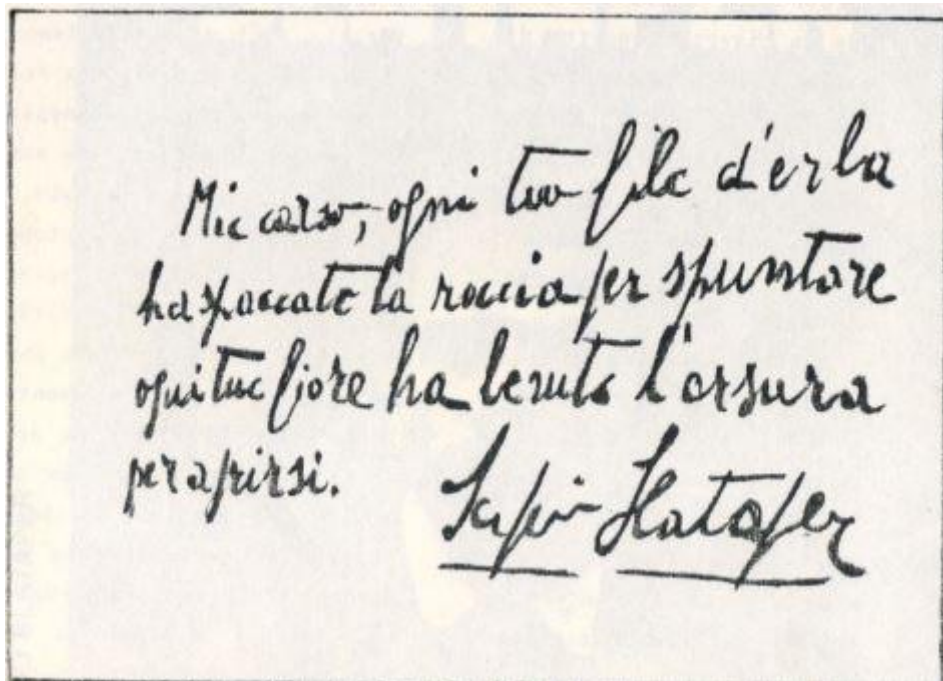 Mio carso, ogni tuo filo d'erba
ha spaccato la roccia per spuntare
ogni tuo fiore ha bevuto l'arsura
per aprirsi.
Scipio Slataper